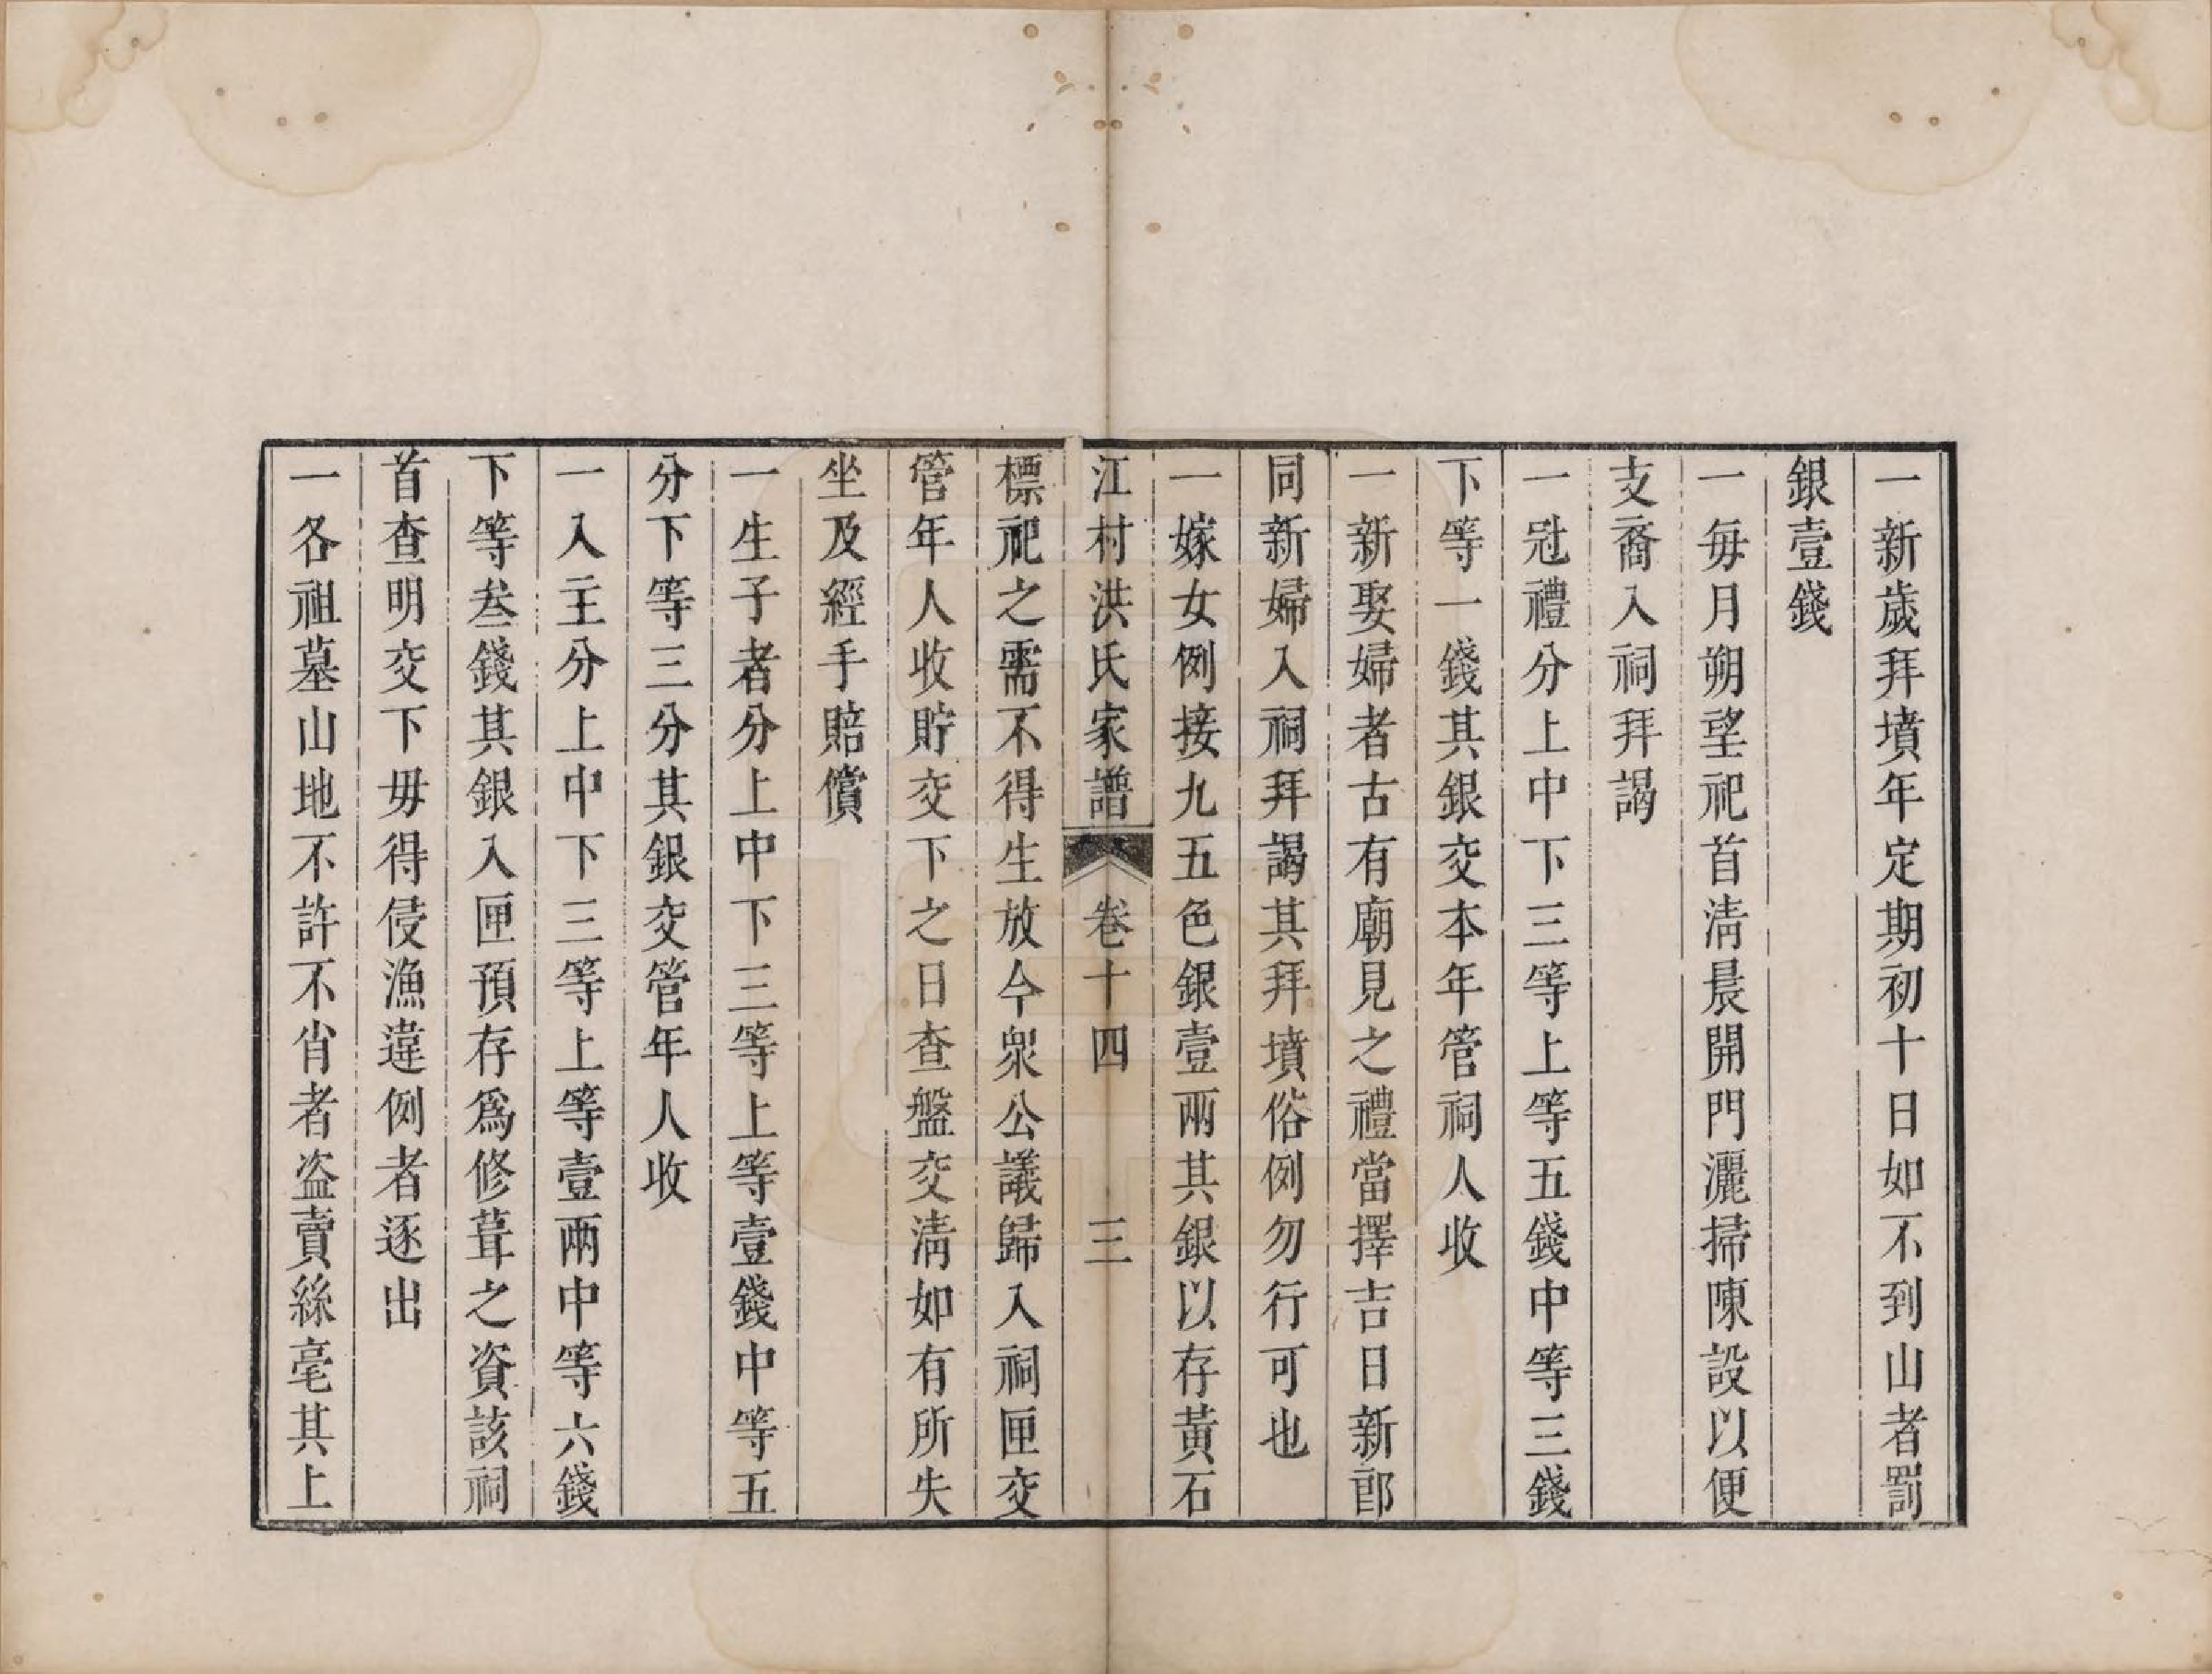 一新歲拜墳年定期初十日如不到山者罰
銀壹錢
一毎月朔望祀首清晨開門灑掃陳設以便
支裔入祠拜謁
一冠禮分上中下三等上等五錢中等三錢
下等一錢其銀交本年管祠人收
一新娶婦者古有廟見之禮當擇吉日新郎
同新婦入祠拜謁其拜墳俗例勿行可也
一嫁女例接九五色銀壹兩其銀以存黃石
江村洪氏家譜 卷十四 三
標祀之需不得生放今衆公議歸入祠匣交
管年人收貯交下之日查盤交清如有所失
坐及經手賠償
一生子者分上中下三等上等壹錢中等五
分下等三分其銀交管年人收
一入主分上中下三等上等壹兩中等六錢
下等叁錢其銀入匣預存爲修葺之資該祠
首查明交下毋得侵漁違例者逐出
一各祖墓山地不許不肖者盗賣絲毫其上